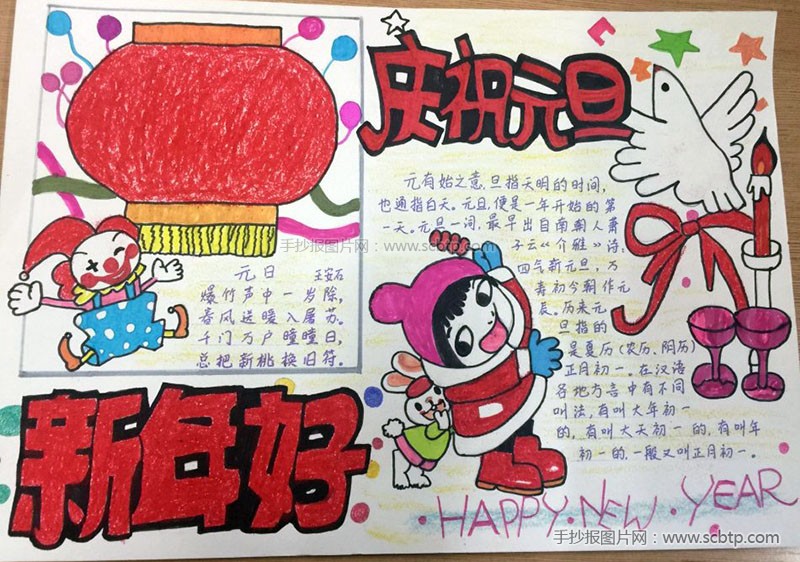 庆祝元旦
元有始之意,旦指天明的时间,
也通指白天。元旦,便是一年开始的第
一天。元旦一词,最早出自南朝人萧
子云《介雅》诗:
四气新元旦,万
寿初今朝作元
辰。历来元
旦指的
是夏历(农历、阴历)
正月初一。在汉语
各地方言中有不同
叫法,有叫大年初一
的,有叫大天初一的,有叫年
初一的,一般又叫正月初一。
元日 王安石
爆竹声中一岁除,
春风送暖入屠苏。
千门万户曈曈日,
总把新桃换旧符。
新年好
HAPPY NEW YEAR
手抄报图片网:www.scbtp.com
手抄报图片网:www.scbtp.com